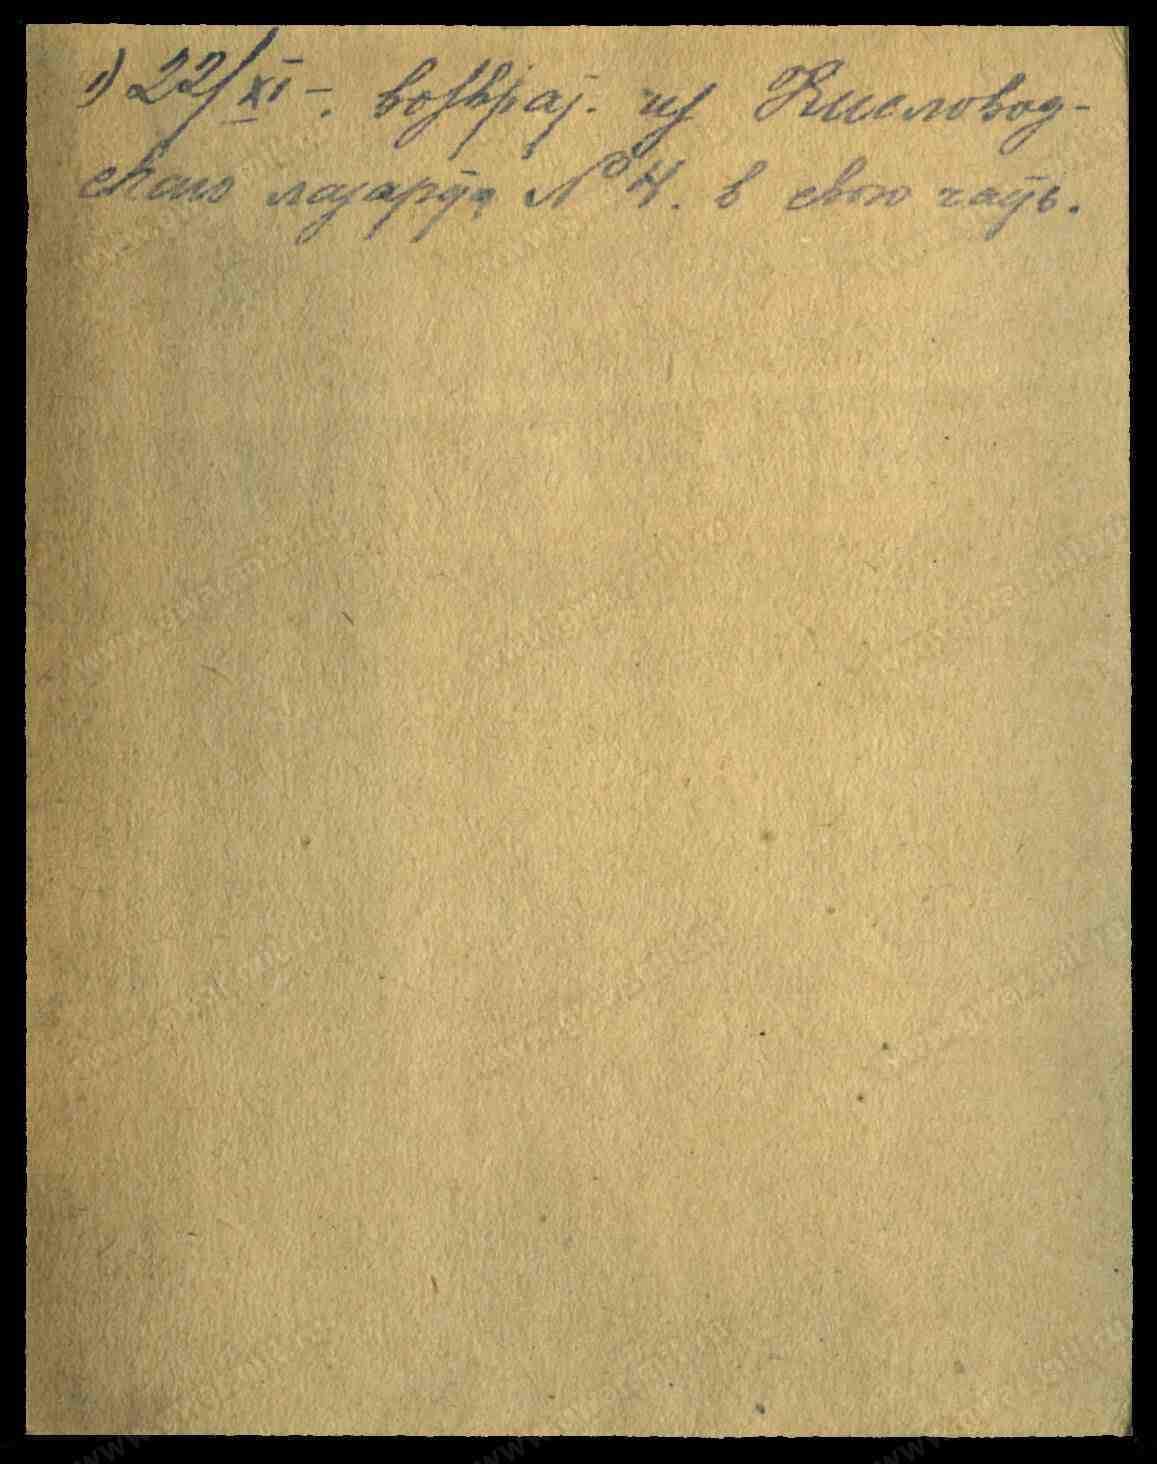 1) 22/XI –. возвращ. из Кисловод-
скаго лазарета № 4. в свою часть.